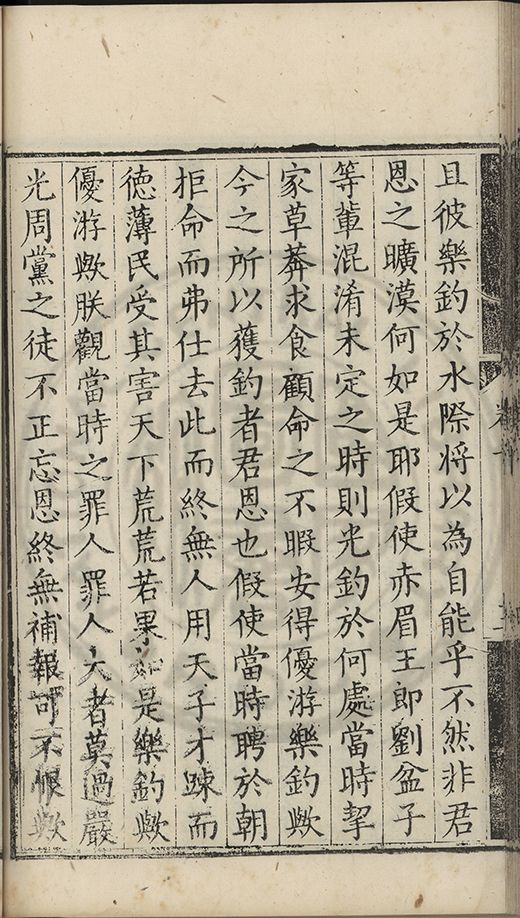 且彼樂釣於水際將以為自能乎不然非君
恩之曠漠何如是耶假使赤眉王郎劉盆子
等輩混淆未定之時則光釣於何處當時挈
家草莽求食顧命之不暇安得優游樂釣歟
今之所以獲釣者君恩也假使當時聘於朝
拒命而弗仕去此而終無人用天子才踈而
徳薄民受其害天下荒荒若果如是樂釣歟
優游歟朕觀當時之罪人罪人大者莫過嚴
光周黨之徒不正忘恩終無補報可不恨歟